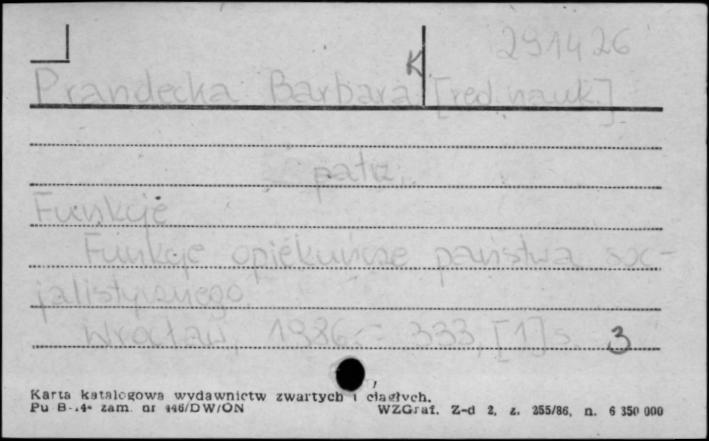 291426
K
Prandecka Barbara [red. nauk.]
patrz.
Funkcje
Funkcje opiekuńcze państwa soc-
jalistycznego.
Wrocław, 1986. – 333, [1] s. 3
Karta katalogowa wydawnictw zwartych i ciągłych.
Pu B-14 zam. nr 446/DW/ON WZGraf. Z-d 2, z. 255/86, n. 6 350 000